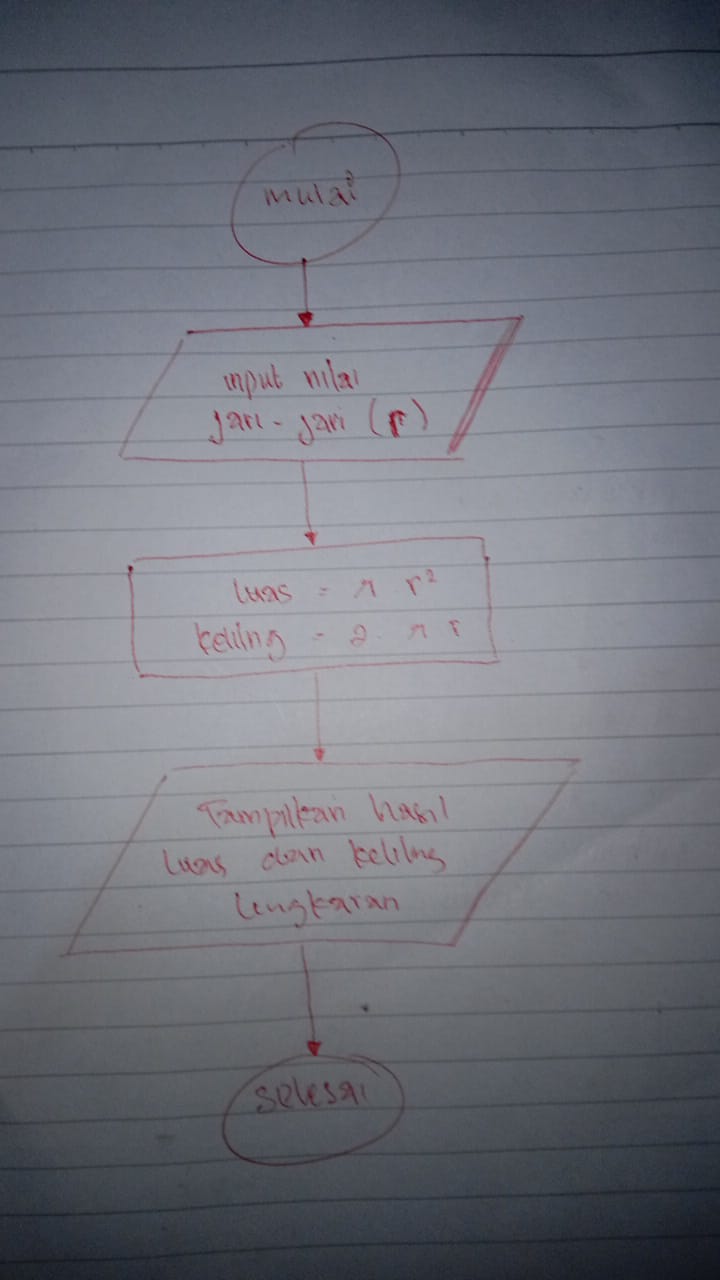 mulai
input nilai
jari - jari (r)
luas = π r²
keliling = 2. π r
Tampilkan hasil
luas dan keliling
lingkaran
selesai